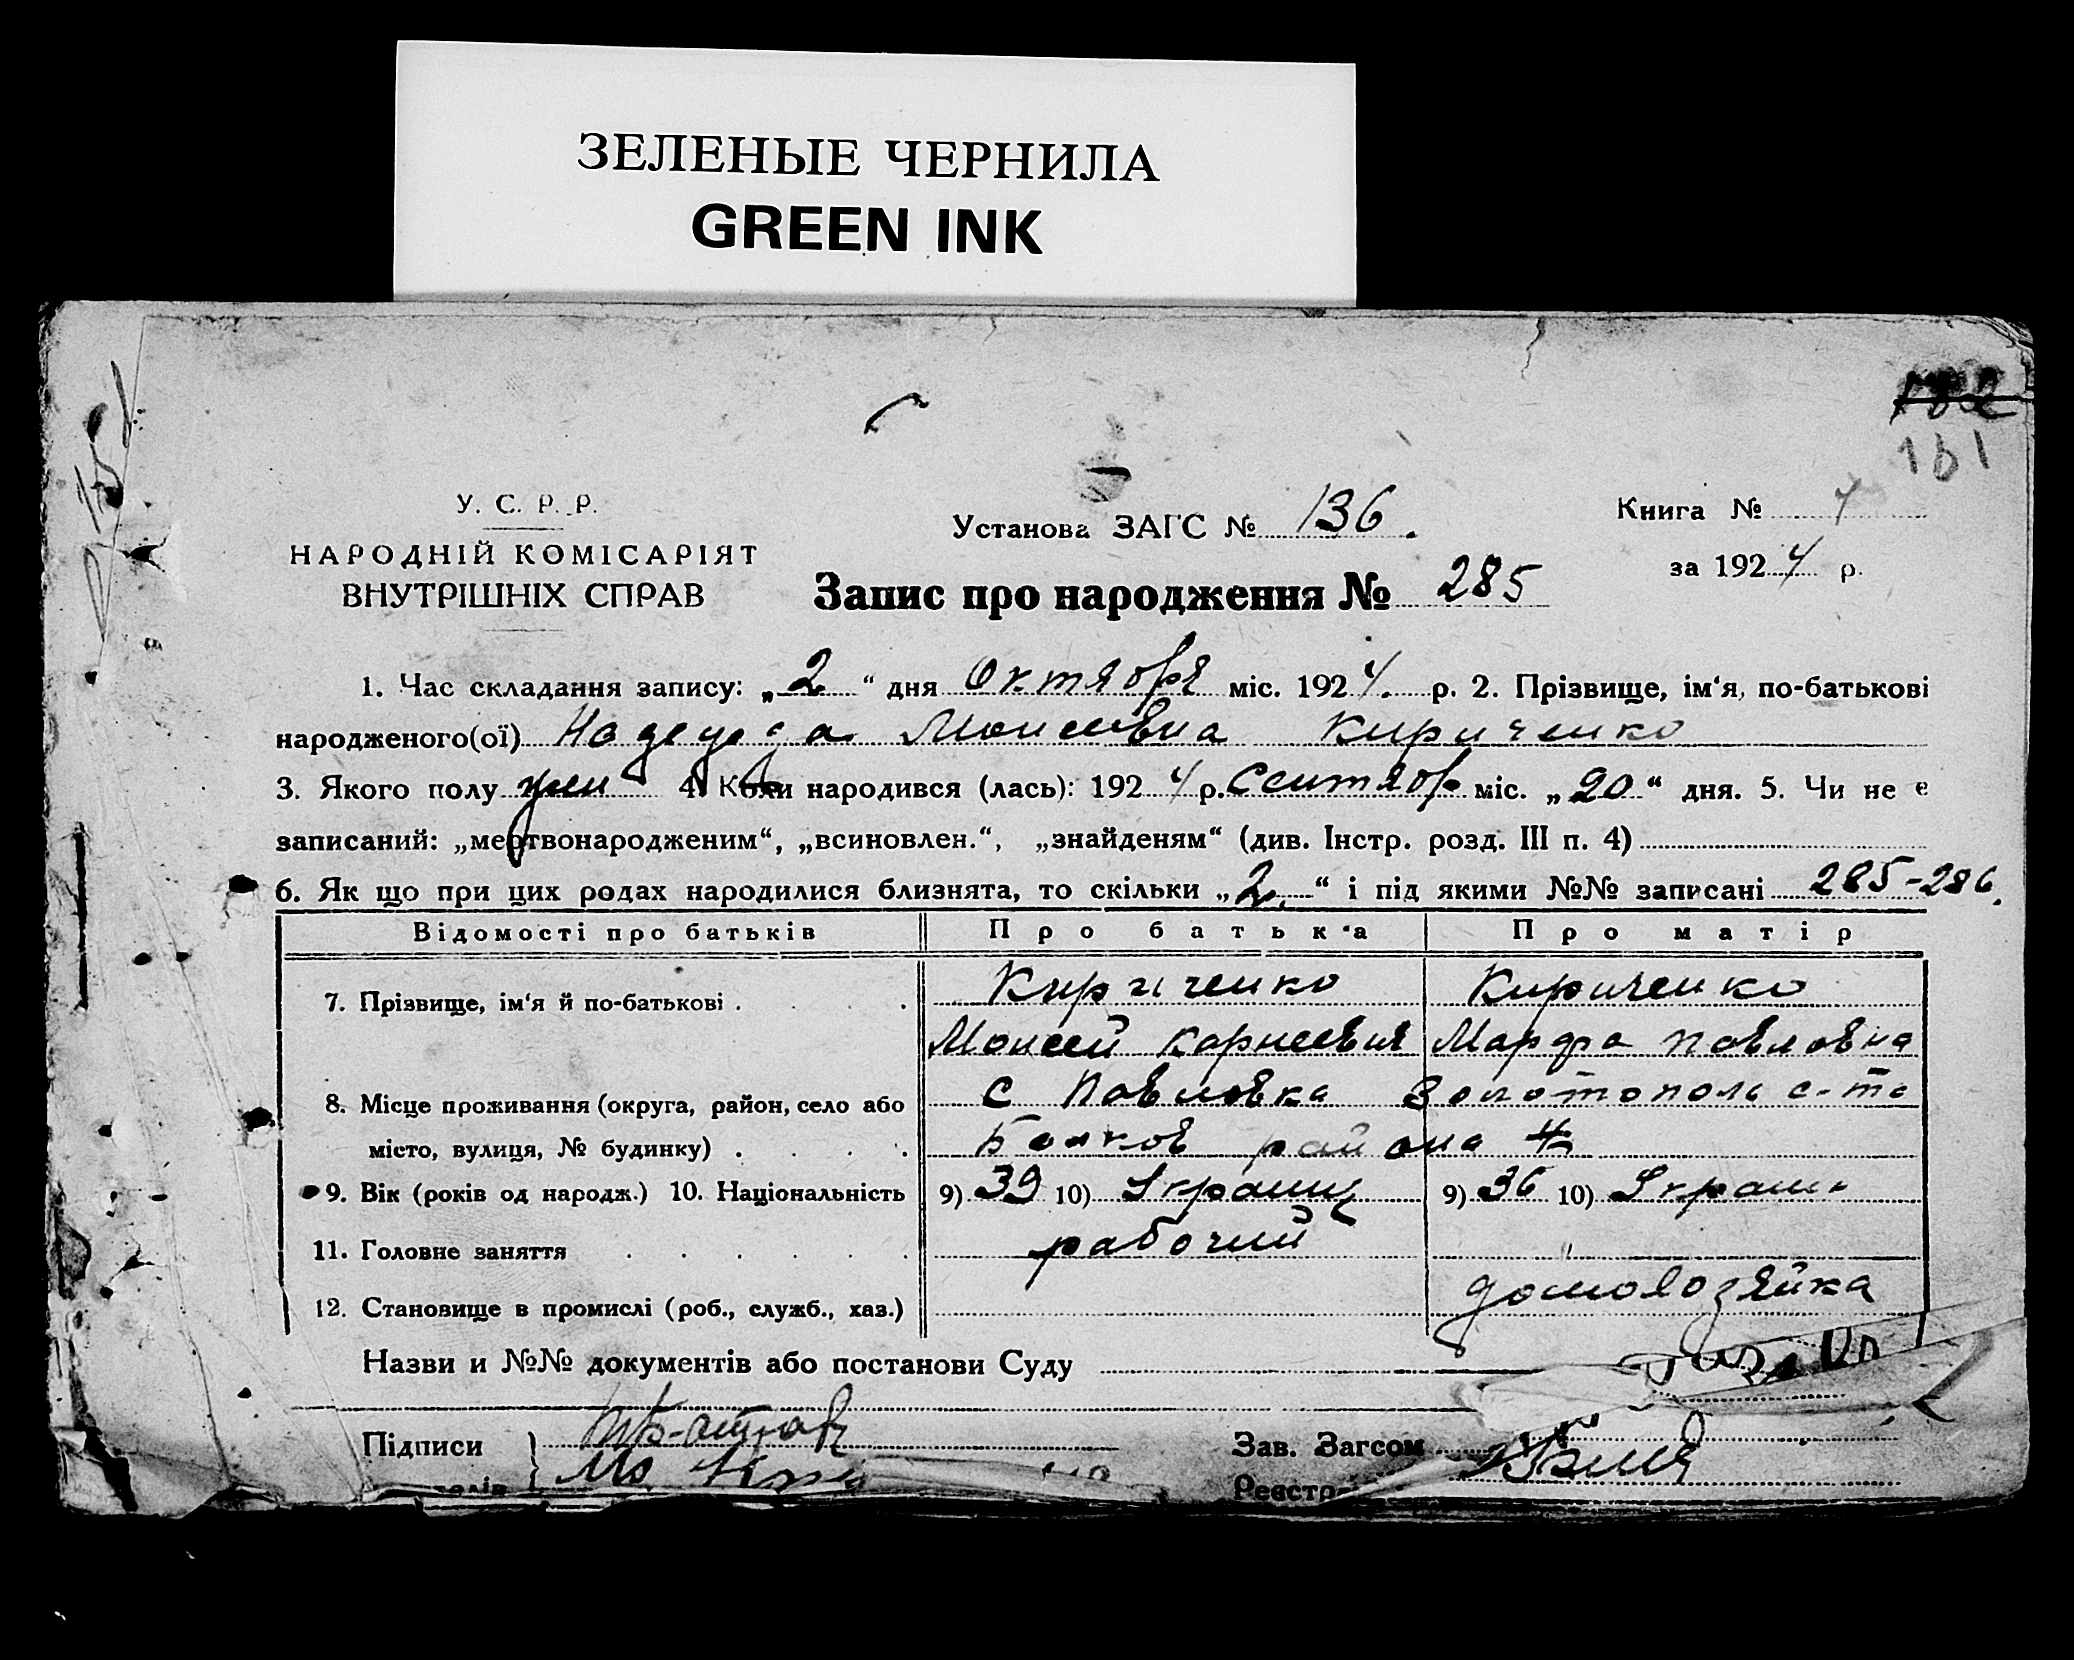 ЗЕЛЕНЫЕ ЧЕРНИЛА
GREEN INK
182
161
У. С. Р. Р.
НАРОДНІЙ КОМІСАРІЯТ
ВНУТРІШНІХ СПРАВ
Установа ЗАГС № 136.
Запис про народження № 285
Книга №
за 1924 р.
1. Час складання запису: „2“ дня Октября міс. 1924. р. 2. Прізвище, ім‘я, по-батькові
народженого(ої) Надежда Моисеевна Кириченко
3. Якого полу жен 4. Коли народився (лась): 1924 р. Сентябр міс. „20“ дня. 5. Чи не є
записаний: „мертвонародженим“, „всиновлен.“, „знайденям“ (див. Інстр. розд. III п. 4)
6. Як що при цих родах народилися близнята, то скільки „2.“ і під якими №№ записані 285-286.
Відомості про батьків Про батька Про матір
7. Прізвище, ім‘я й по-батькові . Кириченко Кириченко
Моисей Корнеевич Марфа Павловна
8. Місце проживання (округа, район, село або с Павловка Золотополь с-та
місто, вулиця, № будинку) . района
9. Вік (років од народж.) 10. Національність 9) 39 10) Украинц 9) 36 10) Украин
11. Головне заняття рабочий
12. Становище в промислі (роб., служб., хаз.) домохозяйка
Назви и №№ документів або постанови Суду
Підписи
Зав. Загсом